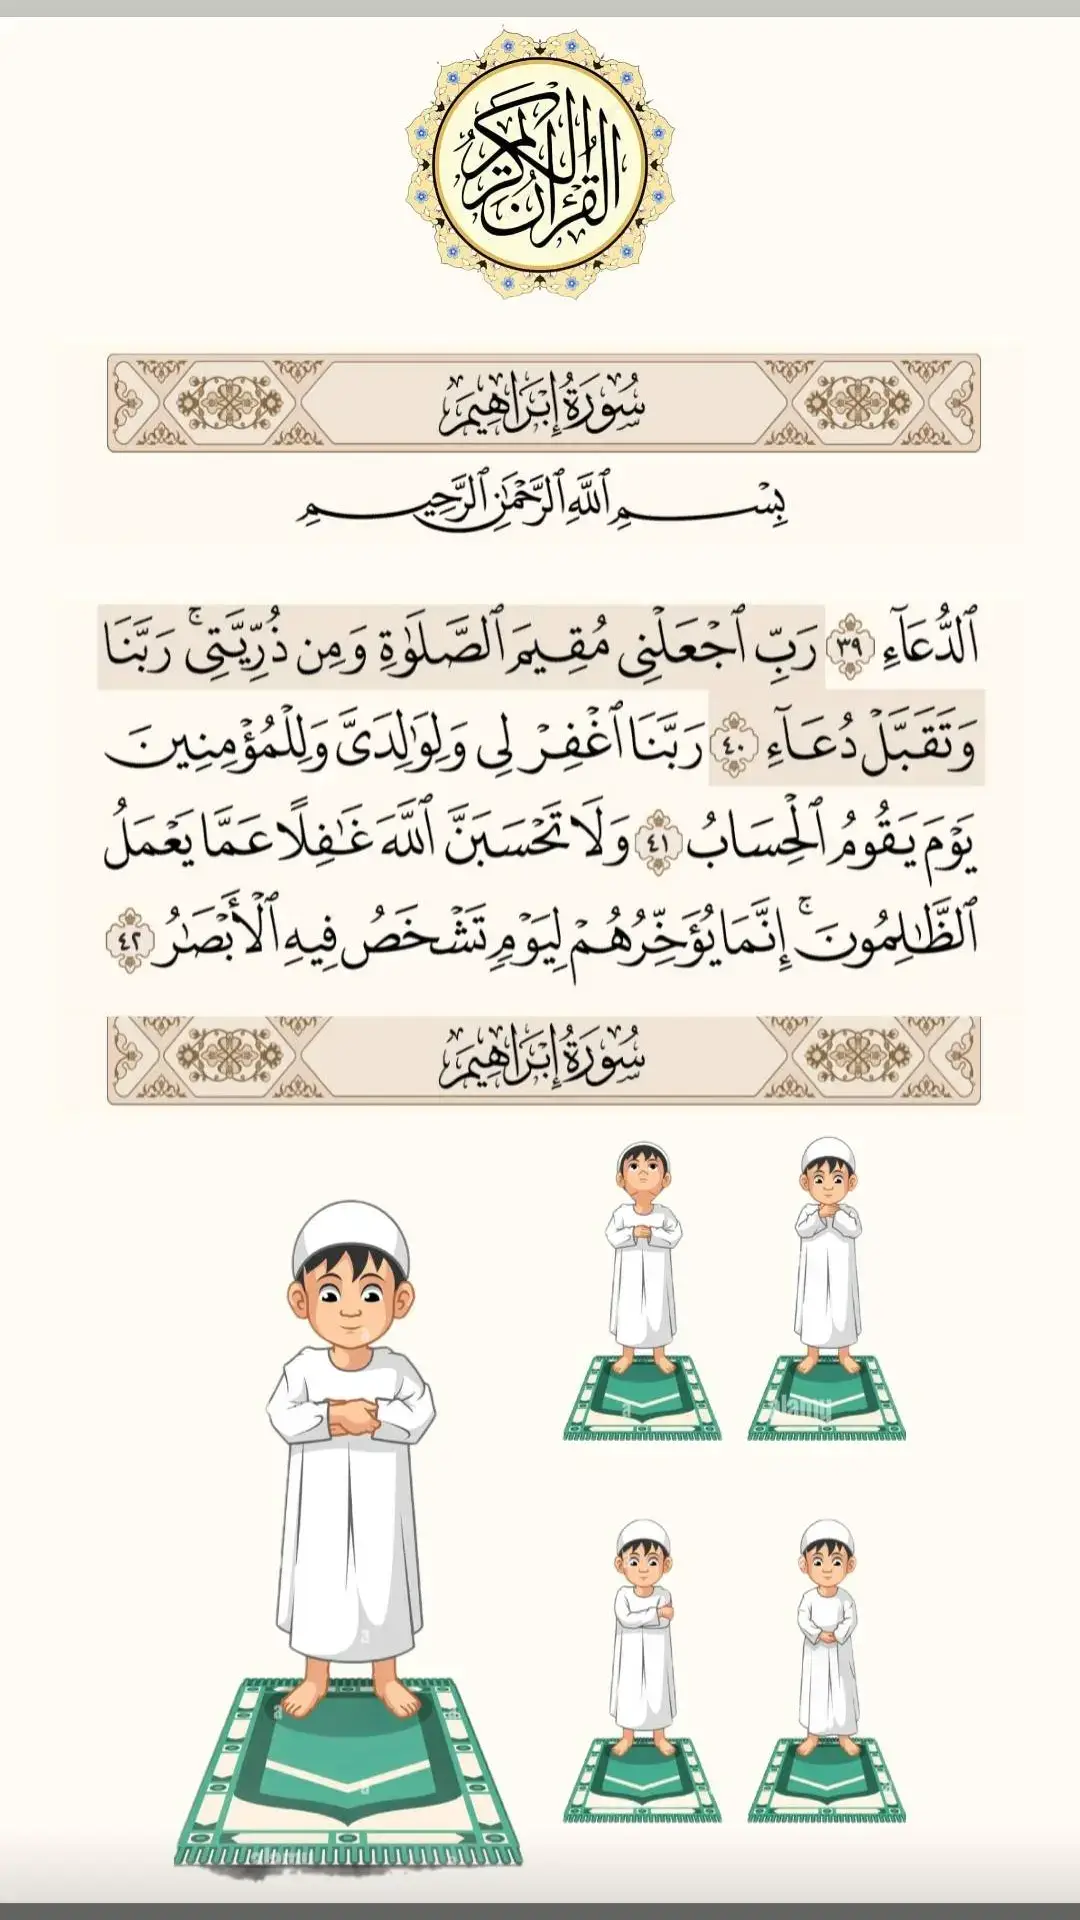 القرآن الكريم
سُورَةُ إِبْرَاهِيمَ
بِسْمِ ٱللَّهِ ٱلرَّحْمَٰنِ ٱلرَّحِيمِ
ٱلدُّعَآءِ ٣٩ رَبِّ ٱجْعَلْنِى مُقِيمَ ٱلصَّلَوٰةِ وَمِن ذُرِّيَّتِى ۚ رَبَّنَا
وَتَقَبَّلْ دُعَآءِ ٤٠ رَبَّنَا ٱغْفِرْ لِى وَلِوَٰلِدَىَّ وَلِلْمُؤْمِنِينَ
يَوْمَ يَقُومُ ٱلْحِسَابُ ٤١ وَلَا تَحْسَبَنَّ ٱللَّهَ غَٰفِلًا عَمَّا يَعْمَلُ
ٱلظَّٰلِمُونَ ۚ إِنَّمَا يُؤَخِّرُهُمْ لِيَوْمٍ تَشْخَصُ فِيهِ ٱلْأَبْصَٰرُ ٤٢
سُورَةُ إِبْرَاهِيمَ
alamy